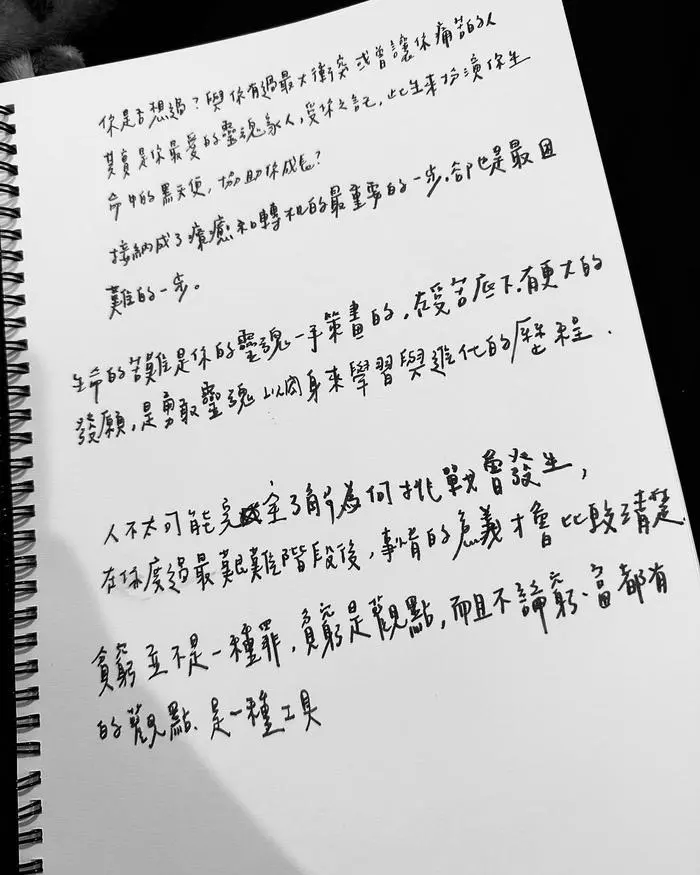 你是否想過?與你有過最大衝突或曾讓你痛苦的人
其實是你最愛的靈魂家人,受你之託,此生來扮演你生
命中的黑天使,協助你成長?
接納成了療癒和轉机的最重要的一步.卻也是最困
難的一步。
生命的苦難是你的靈魂一手策畫的.在受苦底下.有更大的
發願,是勇敢靈魂以肉身來學習與進化的歷程.
人不太可能完全了解為何挑戰會發生,
在你度過最艱難階段後,事情的意義才會比較清楚.
貧窮並不是一種罪,貧窮是觀點,而且不論窮、富都有
的觀點.是一種工具